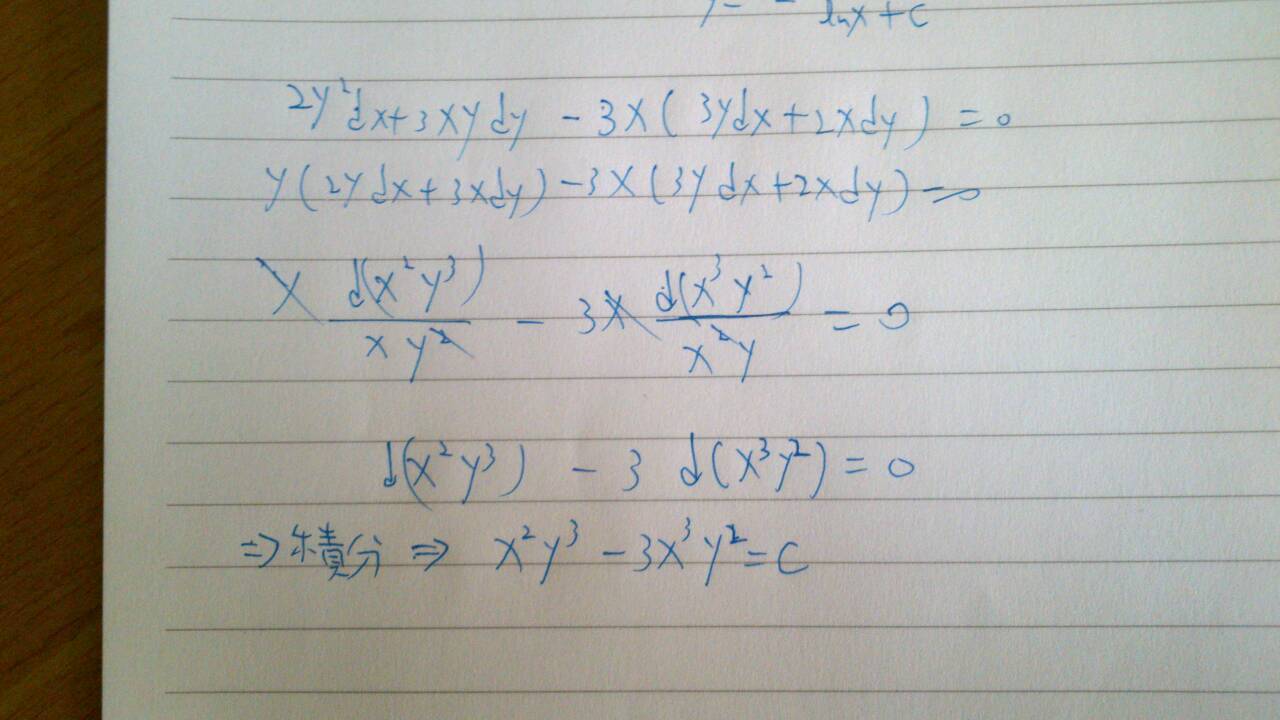 y= lnx+c
2y²dx+3xydy -3x(3ydx+2xdy) =0
y(2ydx+3xdy)-3x(3ydx+2xdy)=0
y d(x²y³)/xy² - 3x d(x³y²)/x²y = 0
d(x²y³) - 3 d(x³y²) = 0
⇒積分⇒ x²y³-3x³y²=C